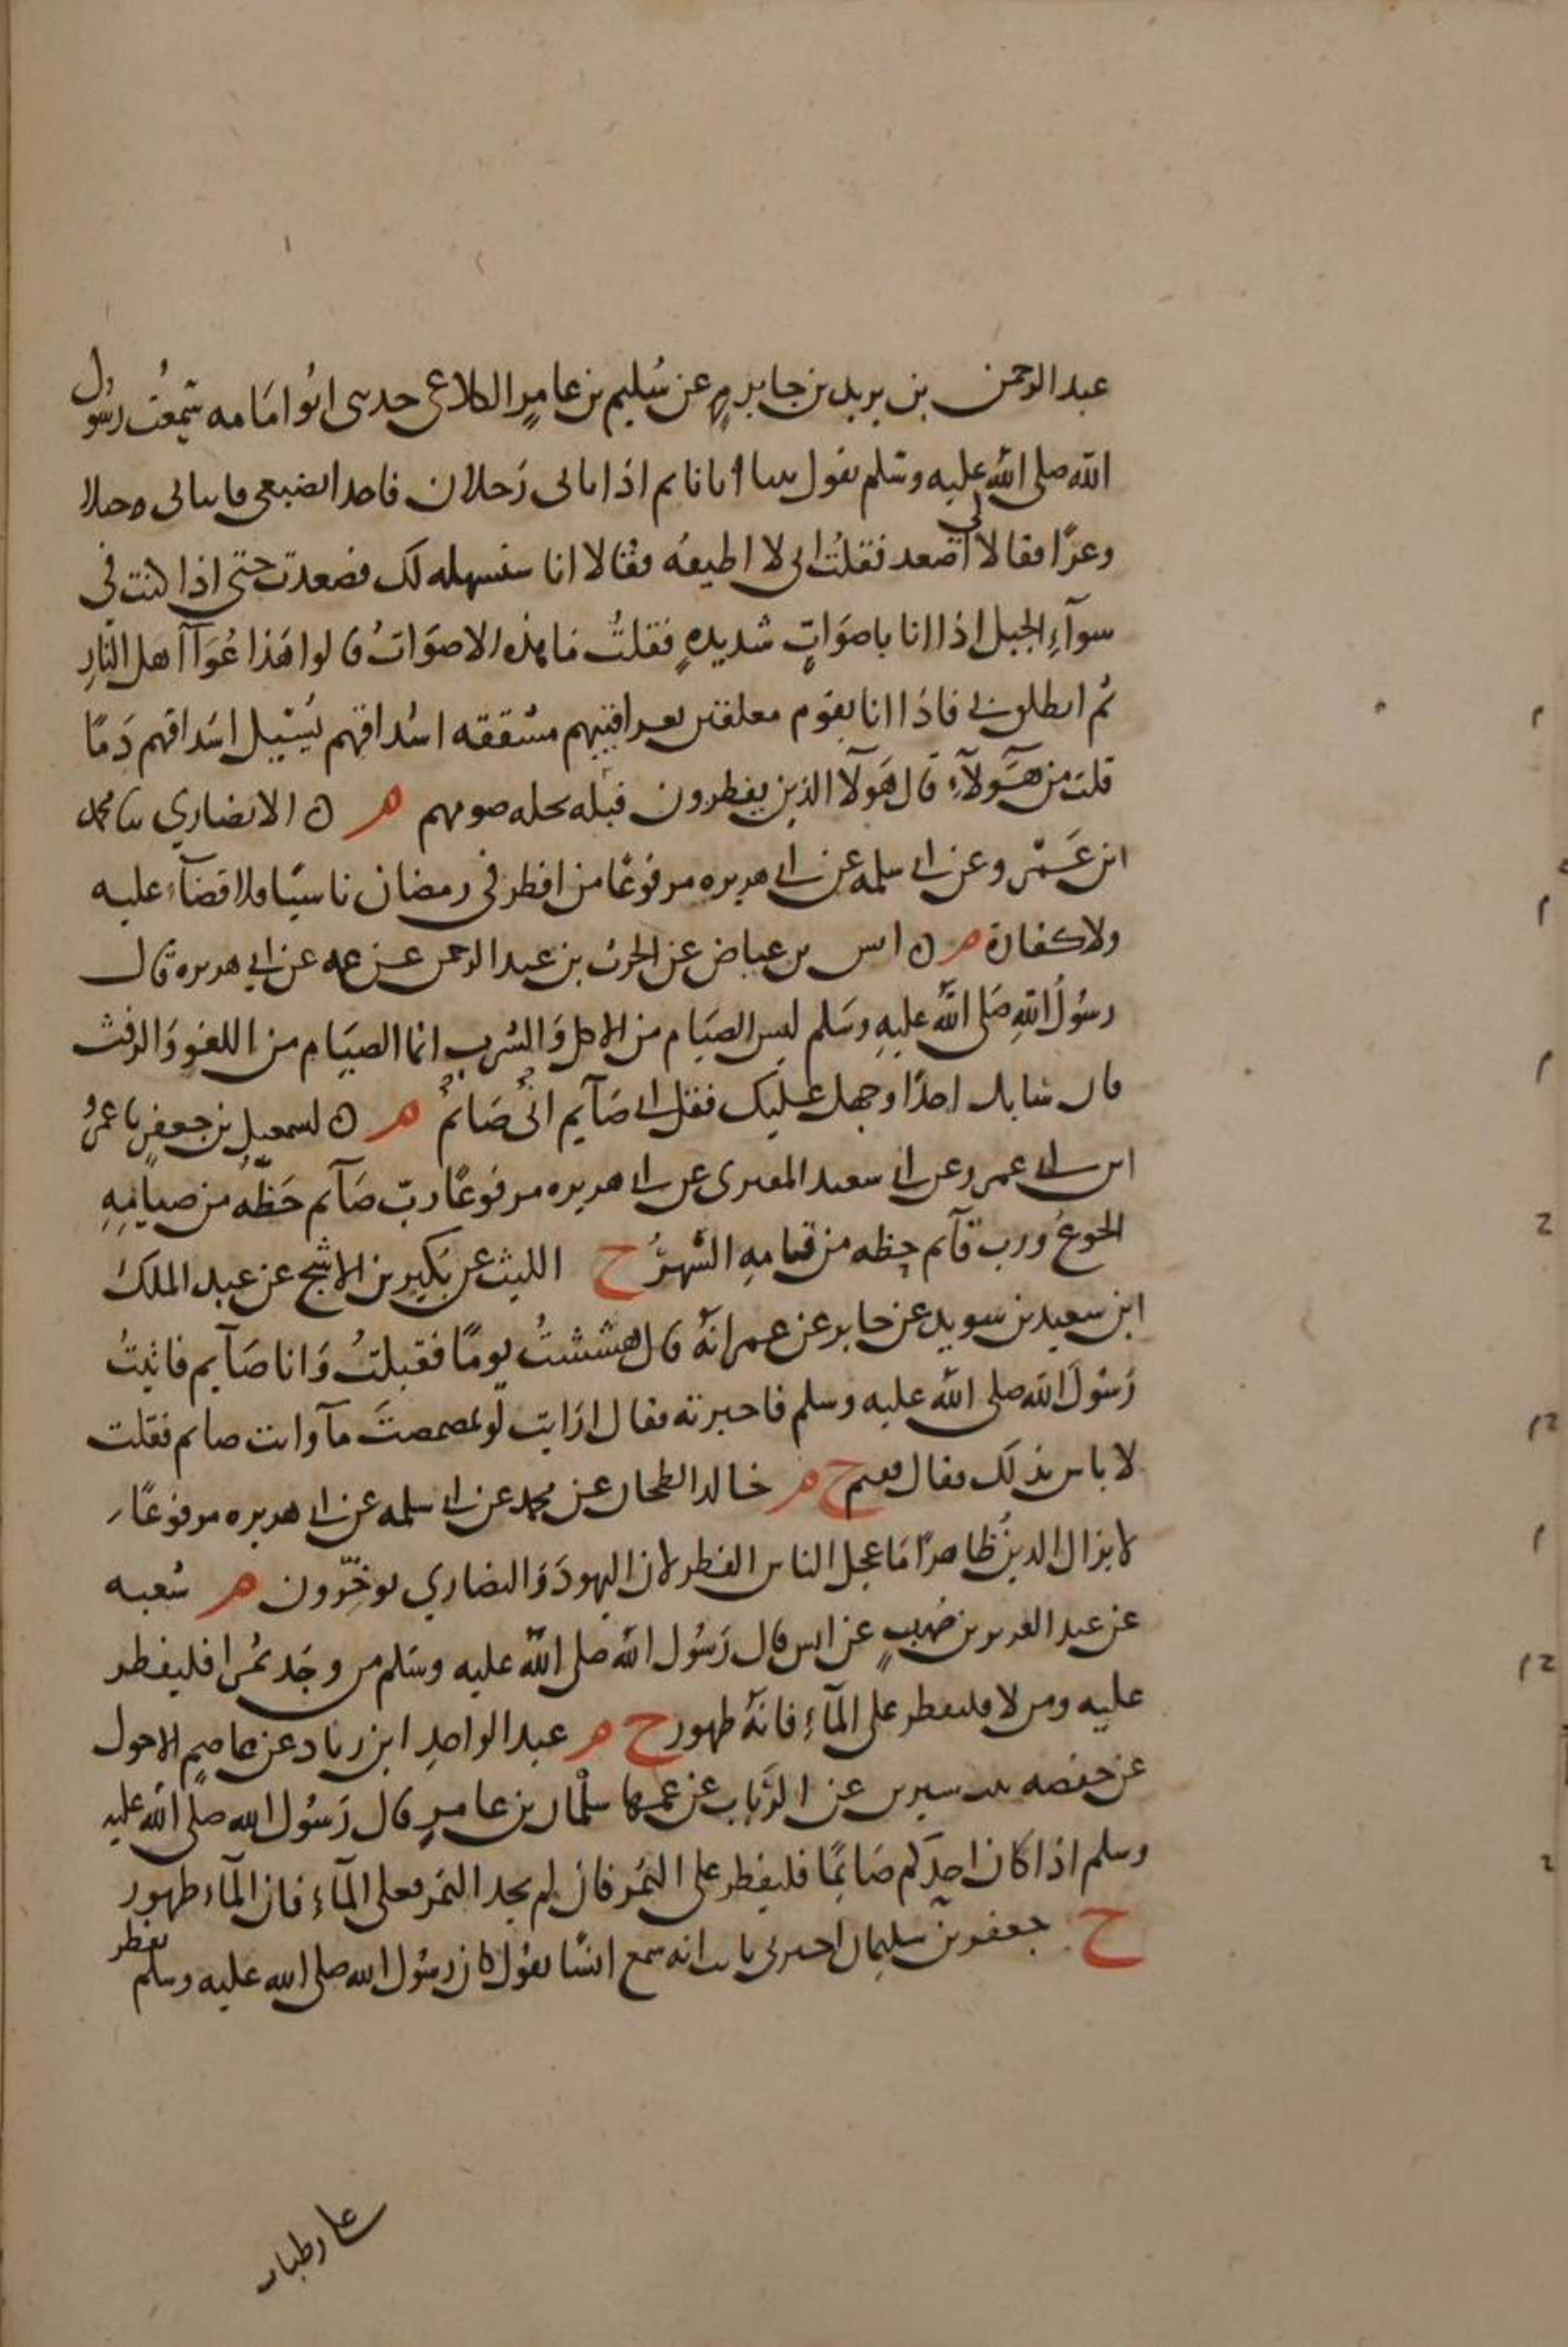 عبد الرحمن بن يزيد بن جابر م عن سُليم بن عامرٍ الكلاعي حدثني ابُو امَامه سَمِعتُ رسُول
الله صلى الله عليه وسَلم يقول بينا انا نايم اذ اتاني رَجلان فاخذا بضبعي فاتيا بي جبلا
وعرًا فقالا لي اصعد فقلتُ اني لا اطيقه فقالا انا سنسهله لك فصعدت حتى اذا كنت في
سوآءِ الجبل اذا انا باصوَاتٍ شديدهٍ فقلتُ مَا هذه الاصوَاتُ قالوا هَذا عُوَآ اَهل النارِ
ثم انطلق بي فاذَا انا بقوم معلقين بعراقيبهم مشققه اشداقهم تسِيل اشداقهم دَمًا
قلت من هَؤلآءِ قال هَؤلآ الذين يفطرون قبله تحله صومهم هـ ن الانصاري ثنا محمد
ابن عَمرو عن ابي سلمه عن ابي هريره مرفوعًا من افطر في رمضان ناسيًا فلا قضآء عليه
ولا كفارة هـ ن انس بن عياض عن الحرث بن عبد الرحمن عن عمه عن ابي هريره قال
رسُولُ اللهِ صَلى الله عليهِ وسَلم ليس الصيَام من الاكل وَالشرب انما الصيَام من اللغوِ وَالرفث
فان سَابك احدًا وجهل عليك فقل اني صَآيم اني صَائم هـ ن اسمعيل بن جعفرٍ نا عَمرو
ابن ابي عمرو عن ابي سعيد المقبري عن ابي هريره مرفوعًا ربّ صَآيم حَظّه من صيامِهِ
الجوعُ ورب قآيم حظه من قيامهِ السَّهَرُ ح الليث عن بُكَير بن الاشج عن عبد الملك
ابن سعيد بن سويد عن جابر عن عمر انهُ قال هششتُ يومًا فقبلتُ وَانا صَآيم فاتيتُ
رَسُولَ الله صلى الله عليه وسلم فاخبرته فقال ارَايت لو تمضمضتَ مآ وانت صايم فقلت
لا باس بذلك فقال ففيم ح هـ خالد الطحان عن محمد عن ابي سلمه عن ابي هريره مرفوعًا
لا يزال الدينُ ظاهرًا مَا عجل الناس الفطر لان اليهودَ وَالنصاري يوخّرون هـ شعبه
عن عبد العزيز بن صُهيبٍ عن انس قال رَسُول الله صلى الله عليه وسَلم من وجَد تمرا فليفطر
عليه ومن لا فليفطر على المآءِ فانهُ طهور ح هـ عبد الواحدِ ابن زياد عن عاصمٍ الاحول
عن حفصه بنت سيرين عن الرَباب عن عمها سلمان بن عامرٍ قال رَسُول الله صلى الله عليه
وسلم اذا كان احدَكم صَائمًا فليفطر على التمر فان لم يجد التمر فعلى المآء فان المآء طهور
ح جعفر بن سليمان اخبرني ثابت انه سمع انسًا يقول كان رسُول الله صلى الله عليه وسلم يفطر